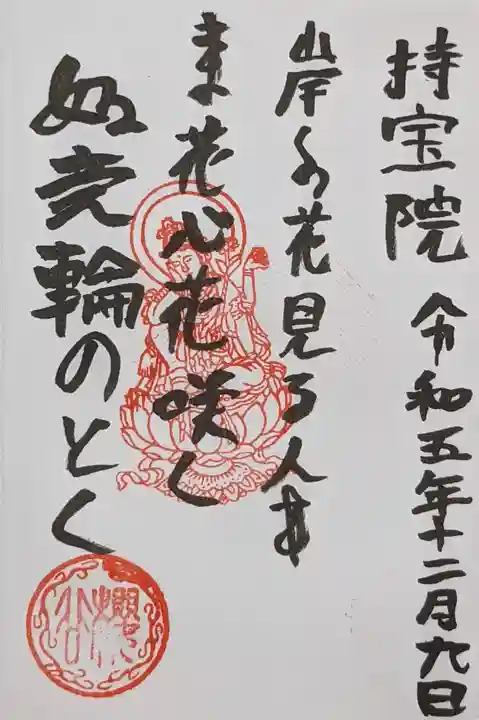 持宝院 令和五年十二月九日
岸の花見る人も
ま花心花咲く
如意輪のとく